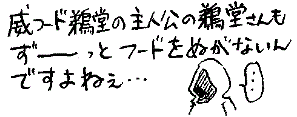 威フード鵜堂の主人公の鵜堂さんも
ずーっとフードをぬがないん
ですよねぇ…
…